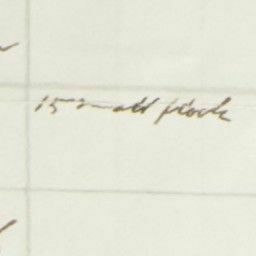 15 small flock